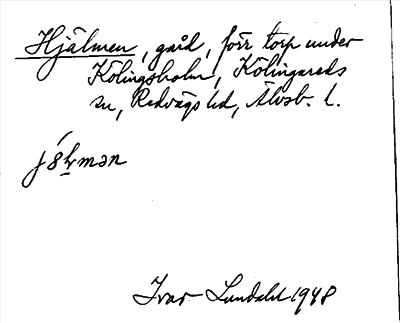 Hjälmen, gård, förr torp under
Kölingsholm, Kölingareds
sn, Redvägs hd, Älvsb. l.
Ivar Lundahl 1948